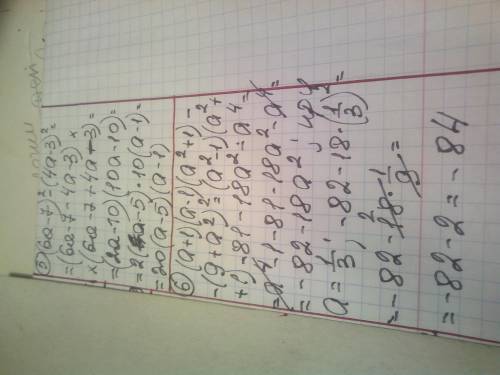 5) (6a-7)² - (4a-3)² =
= (6a-7-4a-3) ×
× (6a-7+4a-3) =
= (2a-10)(10a-10) =
= 2(a-5)·10(a-1) =
= 20(a-5)(a-1)
6) (a+1)(a-1)(a²+1) -
- (9+a²)² = (a²-1)(a²+
+1) - 81 - 18a² - a⁴ =
= a⁴-1-81-18a²-a⁴ =
= -82-18a²
a = 1/3, -82-18·(1/3)² =
= -82-18·1/9 =
= -82-2 = -84